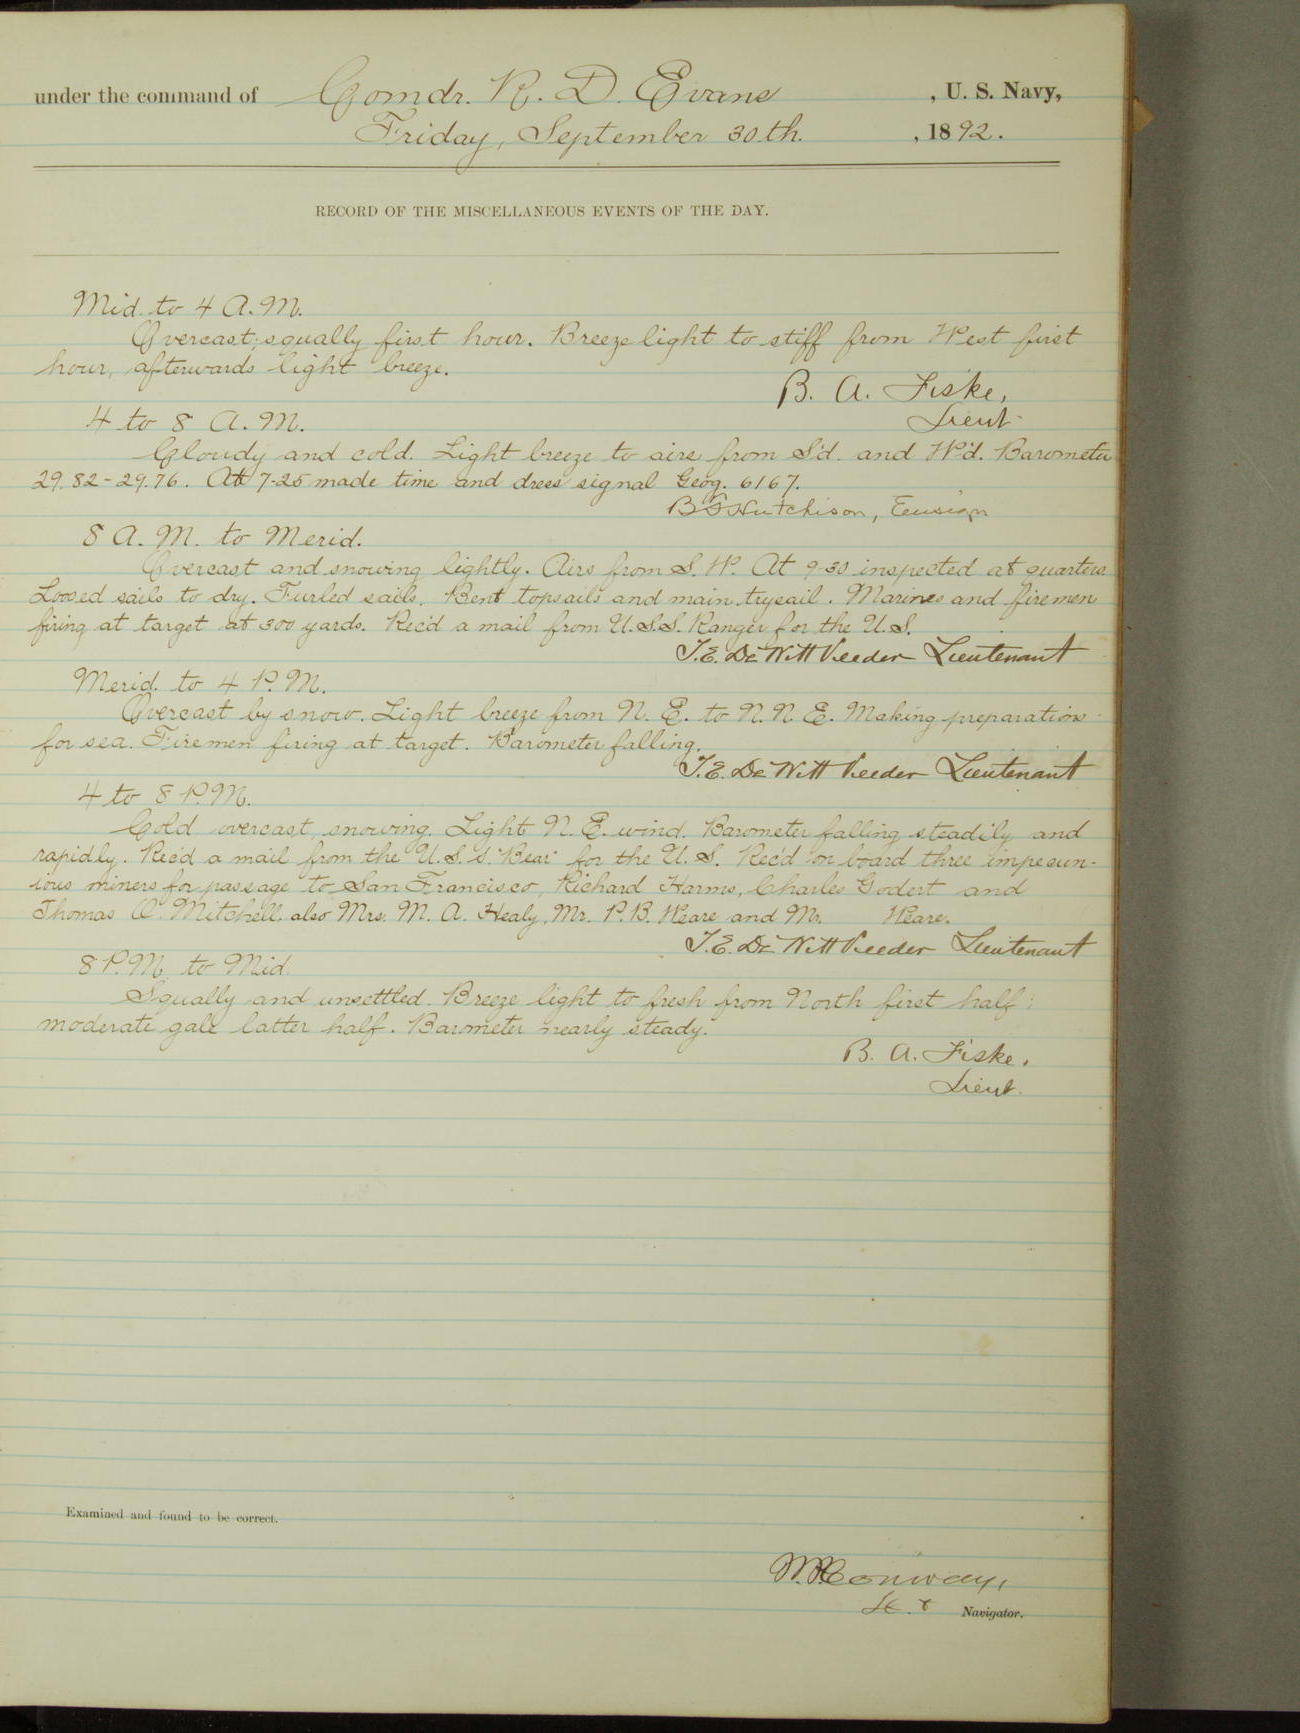 under the command of Comdr. R. D. Evans , U. S. Navy,
Friday, September 30th. , 1892.
RECORD OF THE MISCELLANEOUS EVENTS OF THE DAY.
Mid. to 4 A.M.
Overcast; squally first hour. Breeze light to stiff from West first
hour, afterwards light breeze.
B. A. Fiske,
Lieut.
4 to 8 A.M.
Cloudy and cold. Light breeze to airs from S'd. and W'd. Barometer
29.82-29.76. At 7-25 made time and dress signal Geog. 6167.
Hutchison, Ensign
8 A.M. to Merid.
Overcast and snowing lightly. Airs from S.W. At 9-30 inspected at quarters
Loosed sails to dry. Furled sails. Bent topsails and main trysail. Marines and firemen
firing at target at 300 yards. Rec'd a mail from U.S.S. Ranger for the U.S.
T.E. DeWitt Veeder Lieutenant
Merid. to 4 P.M.
Overcast by snow. Light breeze from N.E. to N.N.E. Making preparations
for sea. Firemen firing at target. Barometer falling.
T.E. DeWitt Veeder Lieutenant
4 to 8 P.M.
Cold overcast, snowing. Light N.E. wind. Barometer falling steadily and
rapidly. Rec'd a mail from the U.S.S. "Bear" for the U.S. Rec'd on board three impecun-
ious miners for passage to San Francisco, Richard Harms, Charles Godert and
Thomas O. Mitchell. also Mrs. M. A. Healy, Mr. P.B. Weare and Mr. Weare.
T.E. DeWitt Veeder Lieutenant
8 P.M. to Mid.
Squally and unsettled. Breeze light to fresh from North first half;
moderate gale latter half. Barometer nearly steady.
B. A. Fiske,
Lieut.
Examined and found to be correct.
Conway,
Navigator.